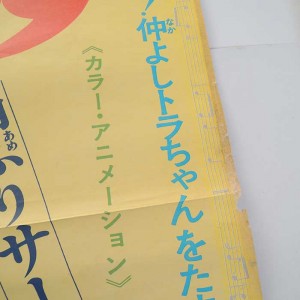 ！仲よしトラちゃんをた
なか
《カラー・アニメーション》
あめ
ふりサー